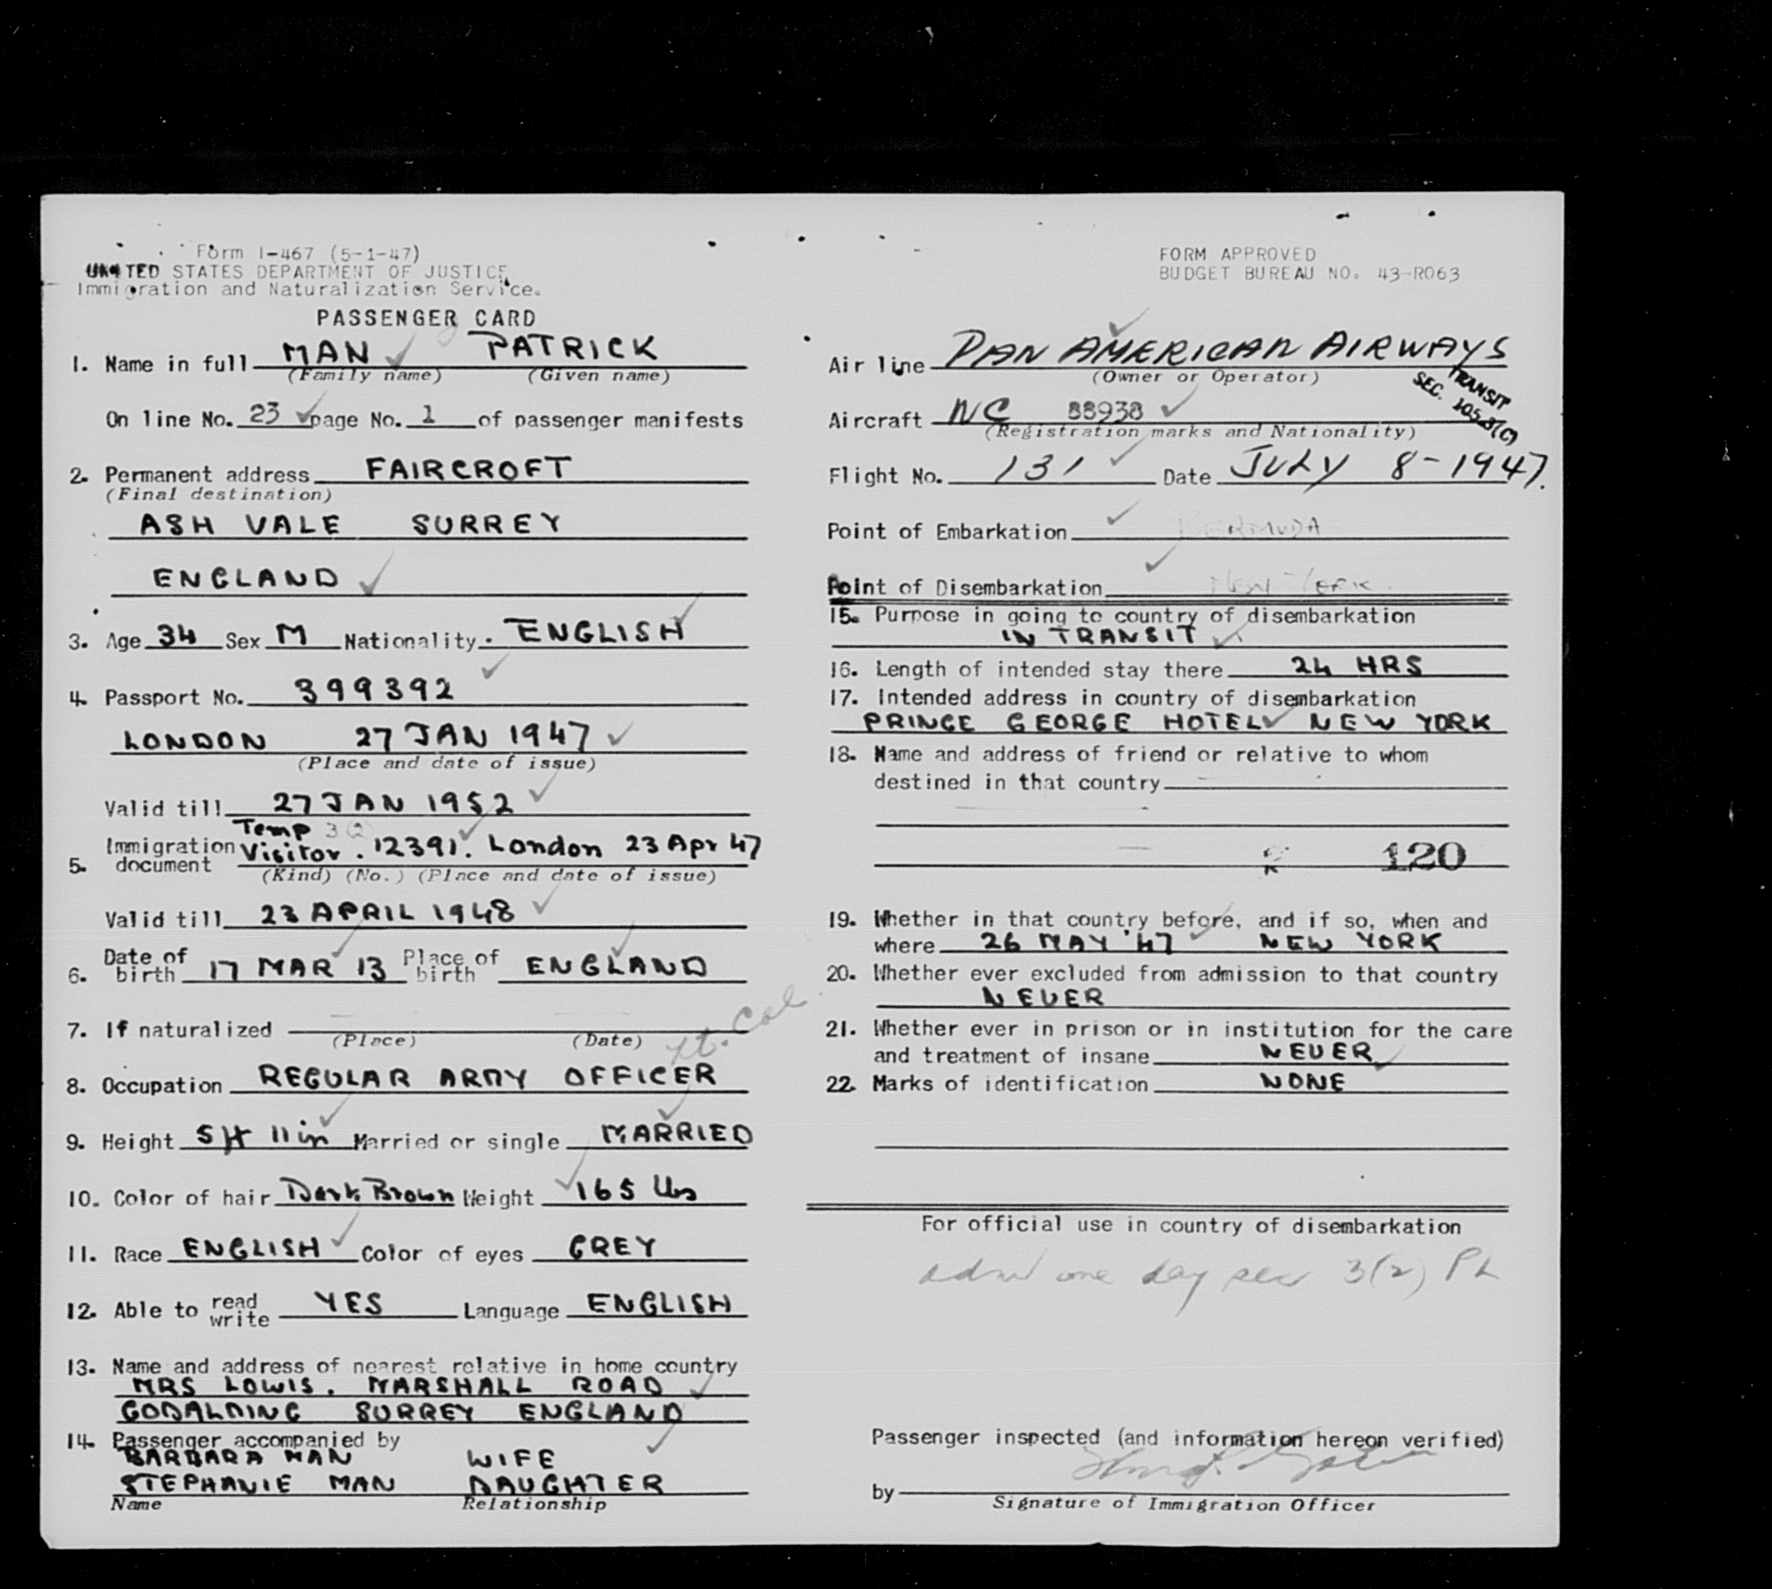 Form I-467 (5-1-47)
UNITED STATES DEPARTMENT OF JUSTICE
Immigration and Naturalization Service.
PASSENGER CARD
1. Name in full MAN PATRICK
(Family name) (Given name)
On line No. 23 page No. 1 of passenger manifests
2. Permanent address FAIRCROFT
(Final destination)
ASH VALE SURREY
ENGLAND
3. Age 34 Sex M Nationality. ENGLISH
4. Passport No. 399392
LONDON 27 JAN 1947
(Place and date of issue)
Valid till 27 JAN 1952
Temp 3(2)
5. Immigration document Visitor. 12391. London 23 Apr 47
(Kind) (No.) (Place and date of issue)
Valid till 23 APRIL 1948
6. Date of birth 17 MAR 13 Place of birth ENGLAND
7. If naturalized
(Place) (Date)
Lt. Col.
8. Occupation REGULAR ARMY OFFICER
9. Height 5ft 11in Married or single MARRIED
10. Color of hair Dark Brown Weight 165 lbs
11. Race ENGLISH Color of eyes GREY
12. Able to read write YES Language ENGLISH
13. Name and address of nearest relative in home country
MRS LOWIS. MARSHALL ROAD
GODALMING SURREY ENGLAND
14. Passenger accompanied by
BARBARA MAN WIFE
STEPHANIE MAN DAUGHTER
Name Relationship
FORM APPROVED
BUDGET BUREAU NO. 43-R063
Air line PAN AMERICAN AIRWAYS
(Owner or Operator)
TRANSIT
SEC. 105.3(C)
Aircraft NC 88938
(Registration marks and Nationality)
Flight No. 131 Date JULY 8-1947.
Point of Embarkation BERMUDA
Point of Disembarkation New York.
15. Purpose in going to country of disembarkation
IN TRANSIT
16. Length of intended stay there 24 HRS
17. Intended address in country of disembarkation
PRINCE GEORGE HOTEL NEW YORK
18. Name and address of friend or relative to whom
destined in that country
120
19. Whether in that country before, and if so, when and
where 26 MAY '47 NEW YORK
20. Whether ever excluded from admission to that country
NEVER
21. Whether ever in prison or in institution for the care
and treatment of insane NEVER
22. Marks of identification NONE
For official use in country of disembarkation
adm one day sec 3(2)
Passenger inspected (and information hereon verified)
by
Signature of Immigration Officer